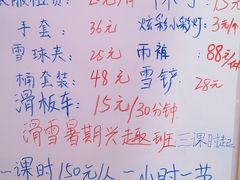 手套： 36元 炫彩小彩灯：3元/个
雪球夹： 25元 雨裤 88元/
桶套装： 48元 雪铲 28元
滑板车： 15元/30分钟
滑雪暑期兴趣班 三课时起
一课时150元/人 一小时一节